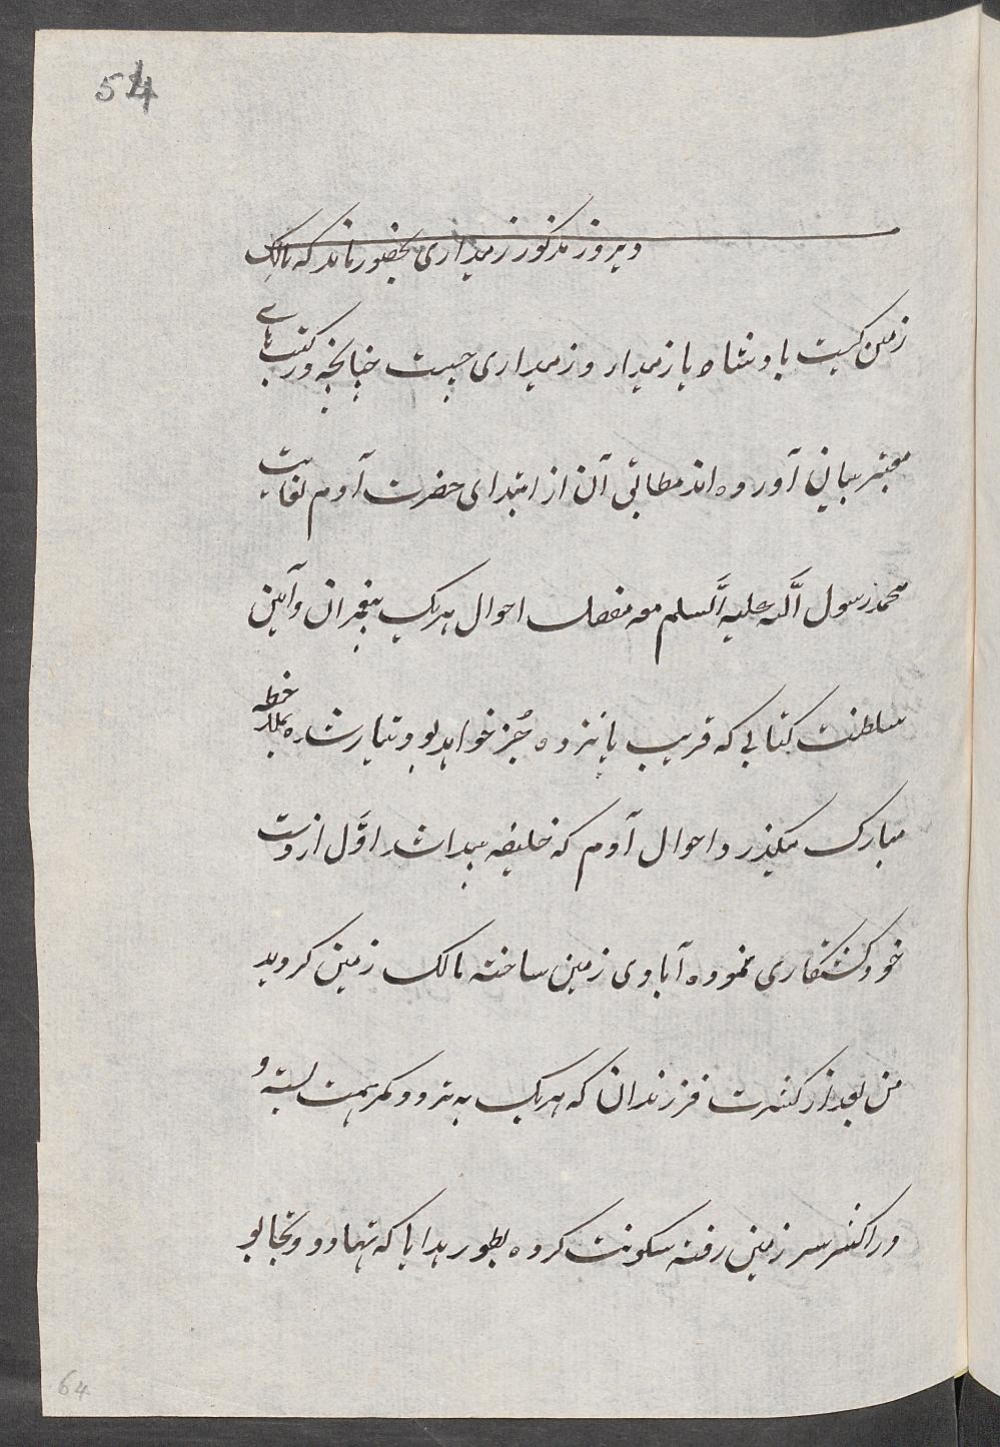 54
دیروز مذکور زمیداری بحضور ماند که مالک
زمین کیست بادشاه یا زمیدار و زمیداری چیست چنانچه در کتب هاے
معتبر بیان آورده اند مطابق آن از ابتدای حضرت آدم لغایت
محمد رسول اللّه علیه السّلم معه مفصل احوال هریک پیغمبران و آیین
سلطنت کتابی که قریب پانزده جُز خواهد بود تیار شده بملاحظه
مبارک میگذرد احوال آدم که خلیفه پیدا شد اوّل از دست
خود کشتکاری نموده آبادی زمین ساخته مالک زمین کردید
من بعد از کثرت فرزندان که هریک به تردد کمر همت بسته و
در اکثر سر زمین رفته سکونت کرده بطور